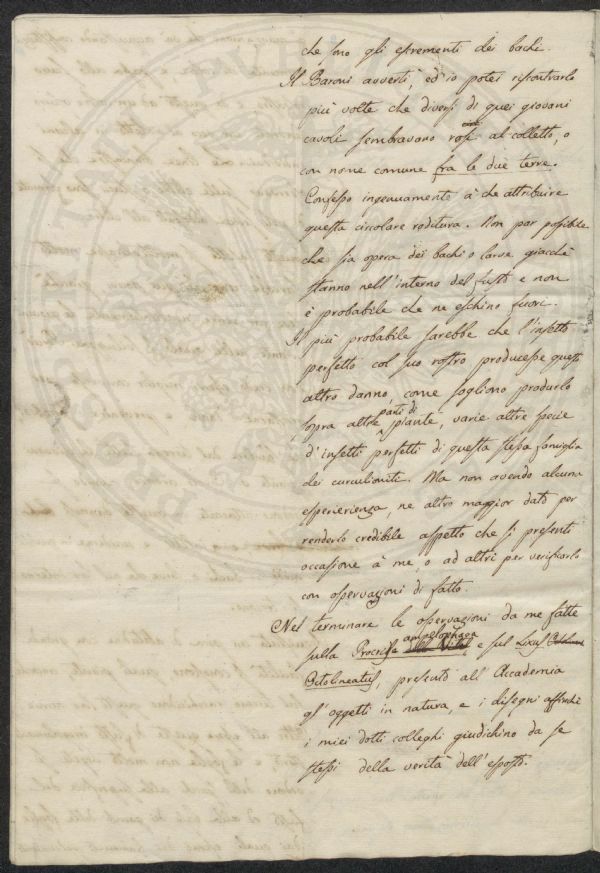 che sono gli escrementi dei bachi.
Il Baroni avvertì, ed io potei riscontrarlo
più volte che diversi di quei giovani
cavoli sembravano rosi al colletto, o
con nome comune fra le due terre.
Confesso ingenuamente à che attribuire
questa circolare roditura. Non par possibile
che sia opera dei bachi o larve giacchè
stanno nell'interno del fusto e non
è probabile che ne eschino fuori.
Il più probabile sarebbe che l'insetto
perfetto col suo rostro producesse quest'
altro danno, come sogliono produrlo
sopra altre parti di piante, varie altre specie
d'insetti perfetti di questa stessa famiglia
dei curculioniti. Ma non avendo alcuna
esperierienza, ne altro maggior dato per
renderlo credibile aspetto che si presenti
occasione à me o ad altri per verificarlo
con osservazioni di fatto.
Nel terminare le osservazioni da me fatte
sulla Procris ampelophaga e sul Lixus
Octolineatus, presento all'Accademia
gl'oggetti in natura, e i disegni affinchè
i miei dotti colleghi giudichino da se
stessi della verità dell'esposto.